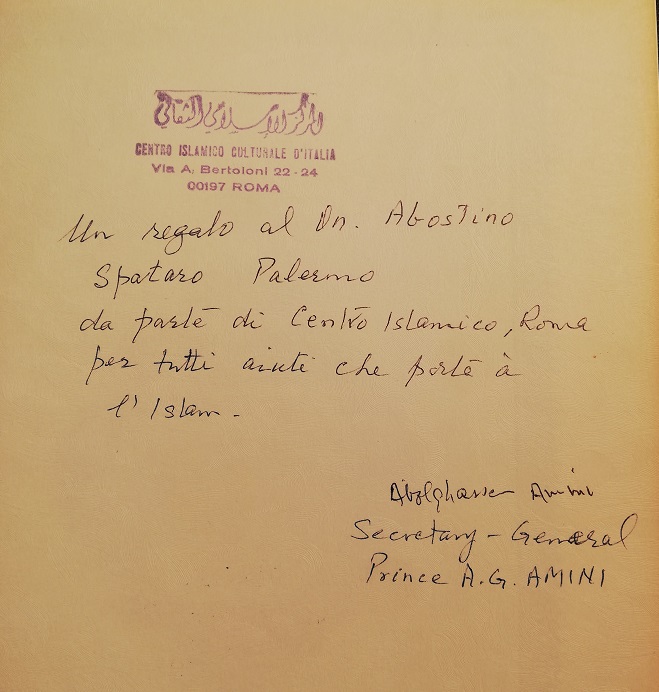 المركز الإسلامي الثقافي
CENTRO ISLAMICO CULTURALE D'ITALIA
Via A. Bertoloni 22-24
00197 ROMA
Un regalo al On. Agostino
Spataro Palermo
da parte di Centro Islamico, Roma
per tutti aiuti che porte à
l'Islam.
Abolghassem Amini
Secretary-General
Prince A.G. AMINI